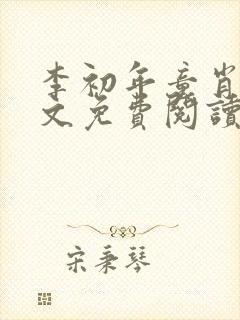 李初年章肖
文免費閱讀
宋秉琴